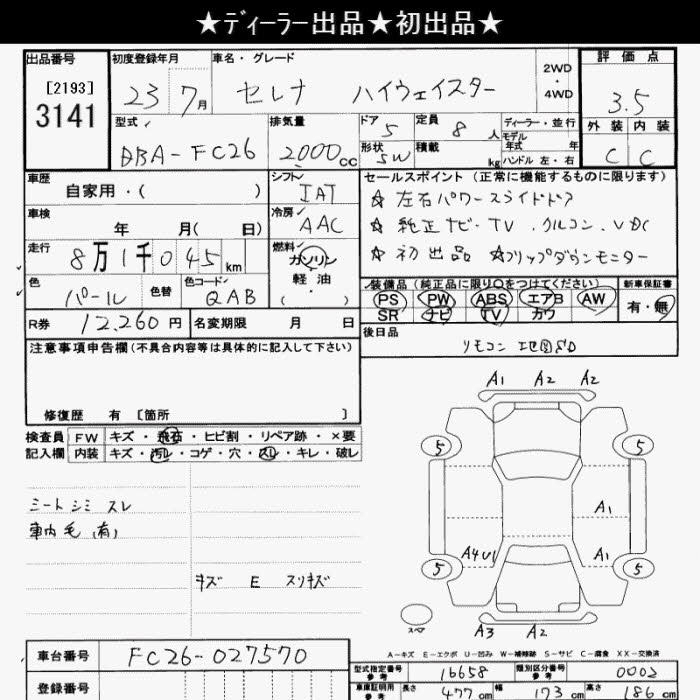 ★ディーラー出品★初出品★
出品番号 初度登録年月 車名・グレード 2WD・4WD 評価点
[2193] 3141 23 7月 セレナ ハイウェイスター 3.5
型式 排気量 ドア 定員 ディーラー・並行 外装 内装
DBA-FC26 2000cc 5 8人 モデル年式 年 C C
形状 SW 積載 kg ハンドル 左・右
車歴 シフト セールスポイント (正常に機能するものに限ります)
自家用・( ) IAT ☆左右パワースライドドア
車検 冷房 ☆純正ナビ・TV.クルコン.VDC
年 月( 日) AAC ☆初出品 ☆フリップダウンモニター
走行 燃料
8万1千045km ガソリン
色 色替 色コード 軽油
パール QAB ( ・ )
装備品(純正品に限り○をつけてください) 新車保証書
PS PW ABS エアB AW 有・無
SR ナビ TV カワ
R券 12,260円 名変期限 月 日 後日品
リモコン 地図SD
注意事項申告欄(不具合内容等は具体的に記入して下さい)
修復歴 有 [箇所 ]
検査員 FW キズ・飛石・ヒビ割・リペア跡・×要
記入欄 内装 キズ・汚レ・コゲ・穴・スレ・キレ・破レ
シートシミ スレ
車内毛(有)
キズ E スリキズ
A1 A2 A2
5 5
A1
A4U1 A1
5 5
スペア A3 A2
A-キズ E-エクボ U-凹み W-補修跡 S-サビ C-腐食 XX-交換済
車台番号 FC26-027570
型式指定番号 参考 16658 類別区分番号 参考 0002
登録番号 車庫証明用 参考 長さ 477cm 幅 173cm 高さ 186cm